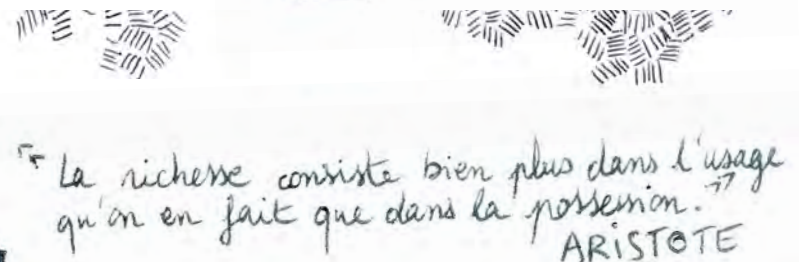 " La richesse consiste bien plus dans l'usage
qu'on en fait que dans la possession. "
ARISTOTE